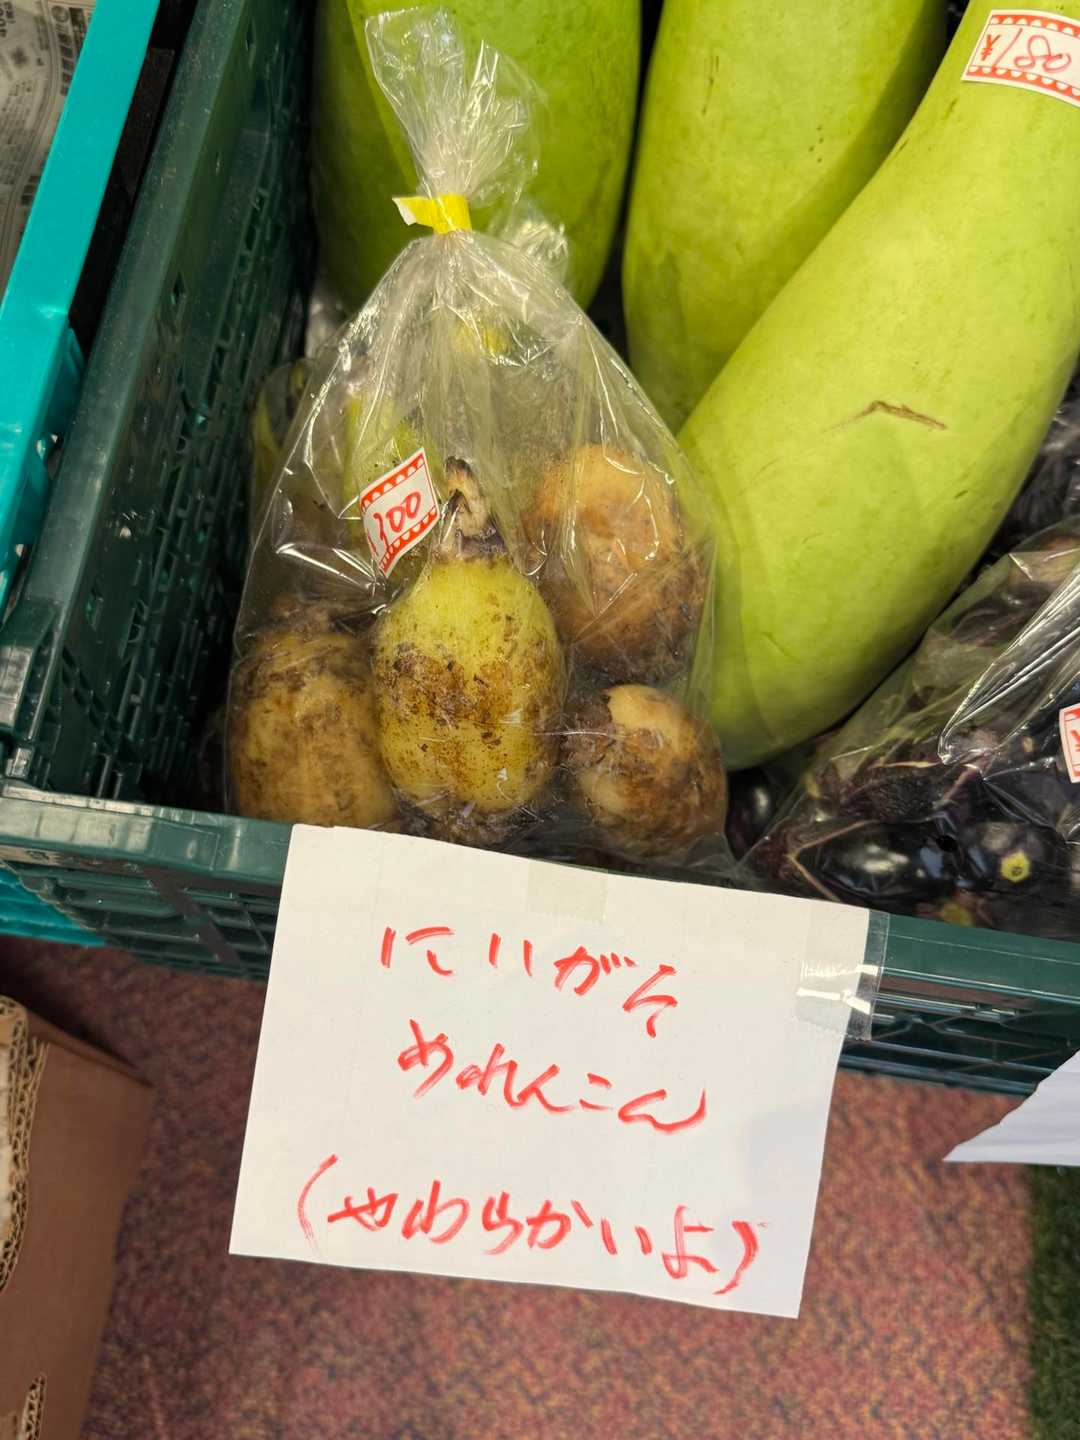 ¥180
¥300
にいがた
めれんこん
(やわらかいよ)